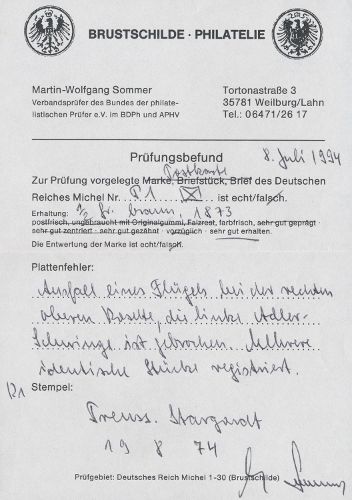 BRUSTSCHILDE · PHILATELIE
Martin-Wolfgang Sommer
Verbandsprüfer des Bundes der philate-
listischen Prüfer e.V. im BDPh und APHV
Tortonastraße 3
35781 Weilburg/Lahn
Tel.: 06471/26 17
Prüfungsbefund
8. Juli 1994
Postkarte
Zur Prüfung vorgelegte Marke, Briefstück, Brief des Deutschen
Reiches Michel Nr. P1 ist echt/falsch.
Erhaltung: 1/2 Gr. braun, 1873
postfrisch, ungebraucht mit Originalgummi, Falzreste, farbfrisch, sehr gut geprägt ·
sehr gut zentriert · sehr gut gezähnt · vorzüglich · sehr gut erhalten.
Die Entwertung der Marke ist echt/falsch.
Plattenfehler:
Ausfall eines Flügels bei der rechten
oberen Rosette, die linke Adler-
schwinge ist gebrochen. Mehrere
identische Stücke registriert.
Stempel:
Preuss. Stargardt
19 8 74
Prüfgebiet: Deutsches Reich Michel 1-30 (Brustschilde)